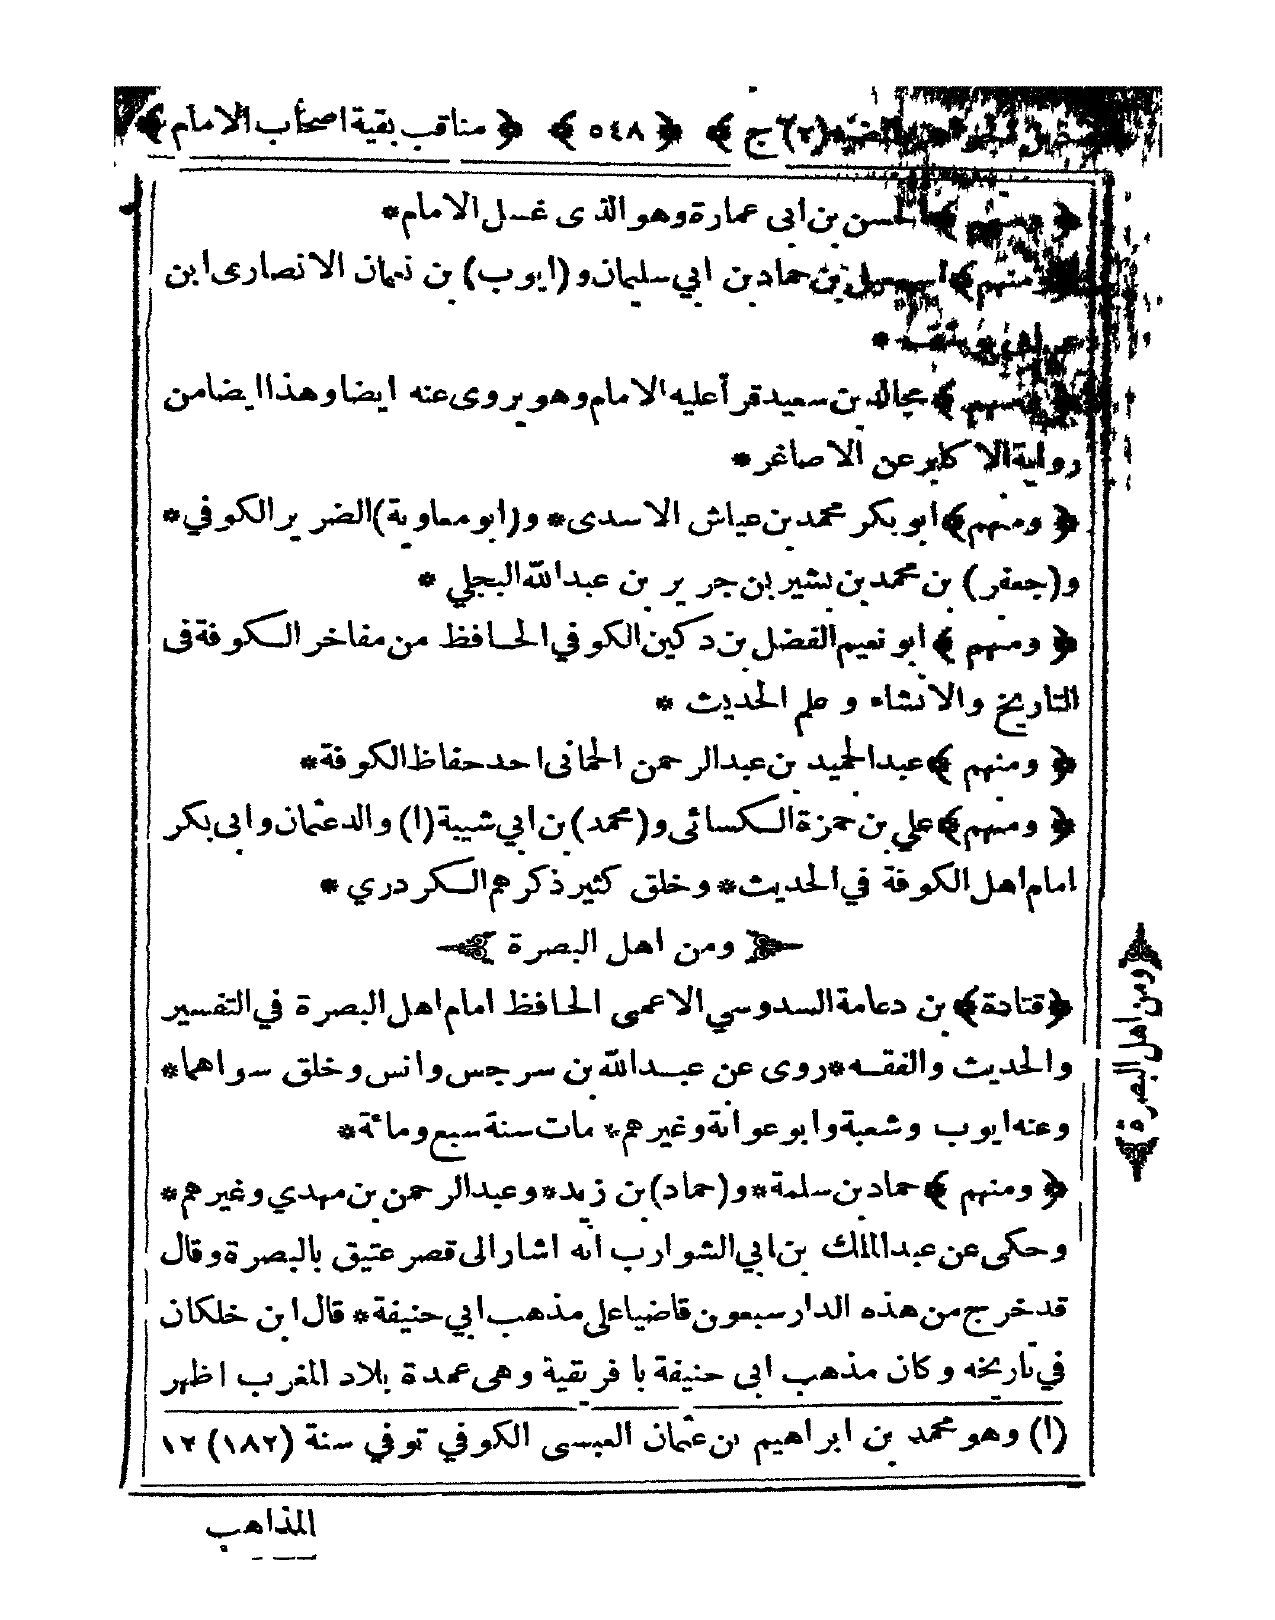 ﴿ مناقب بقية اصحاب الامام ﴾ ﴿ ٥٤٨ ﴾ (٢) ج ﴾
﴿ ومنهم ﴾ الحسن بن ابى عمارة وهو الذى غسل الامام *
ومنهم ﴾ بن حماد بن ابي سليمان و (ايوب) بن نعمان الانصارى ابن
*
ومنهم ﴾ مجالد بن سعيد قرأ عليه الامام وهو يروى عنه ايضا وهذا ايضا من
رواية الاكابر عن الاصاغر *
﴿ ومنهم ﴾ ابو بكر محمد بن عياش الاسدى * و (ابو معاوية) الضرير الكوفي *
و (جعفر) بن محمد بن بشير بن جرير بن عبد الله البجلي *
﴿ ومنهم ﴾ ابو نعيم الفضل بن دكين الكوفي الحافظ من مفاخر الكوفة فى
التاريخ والانشاء و علم الحديث *
﴿ ومنهم ﴾ عبد الحميد بن عبد الرحمن الحمانى احد حفاظ الكوفة *
﴿ ومنهم ﴾ علي بن حمزة الكسائى و (محمد) بن ابي شيبة (١) والد عثمان وابى بكر
امام اهل الكوفة في الحديث * وخلق كثير ذكرهم الكردري *
﴿ ومن اهل البصرة ﴾
﴿ قتادة ﴾ بن دعامة السدوسي الاعمى الحافظ امام اهل البصرة في التفسير
والحديث والفقه * روى عن عبد الله بن سرجس وانس وخلق سواهما *
وعنه ايوب وشعبة وابو عوانة وغيرهم * مات سنة سبع ومائة *
﴿ ومنهم ﴾ حماد بن سلمة * و (حماد) بن زيد * وعبد الرحمن بن مهدي وغيرهم *
وحكى عن عبد الملك بن ابي الشوارب انه اشار الى قصر عتيق بالبصرة وقال
قد خرج من هذه الدار سبعون قاضيا على مذهب ابي حنيفة * قال ابن خلكان
في تاريخه وكان مذهب ابى حنيفة بافريقية وهى عمدة بلاد المغرب اظهر
(١) وهو محمد بن ابراهيم بن عثمان العبسى الكوفي توفي سنة (١٨٢) ١٢
المذاهب
﴿ ومن اهل البصرة ﴾